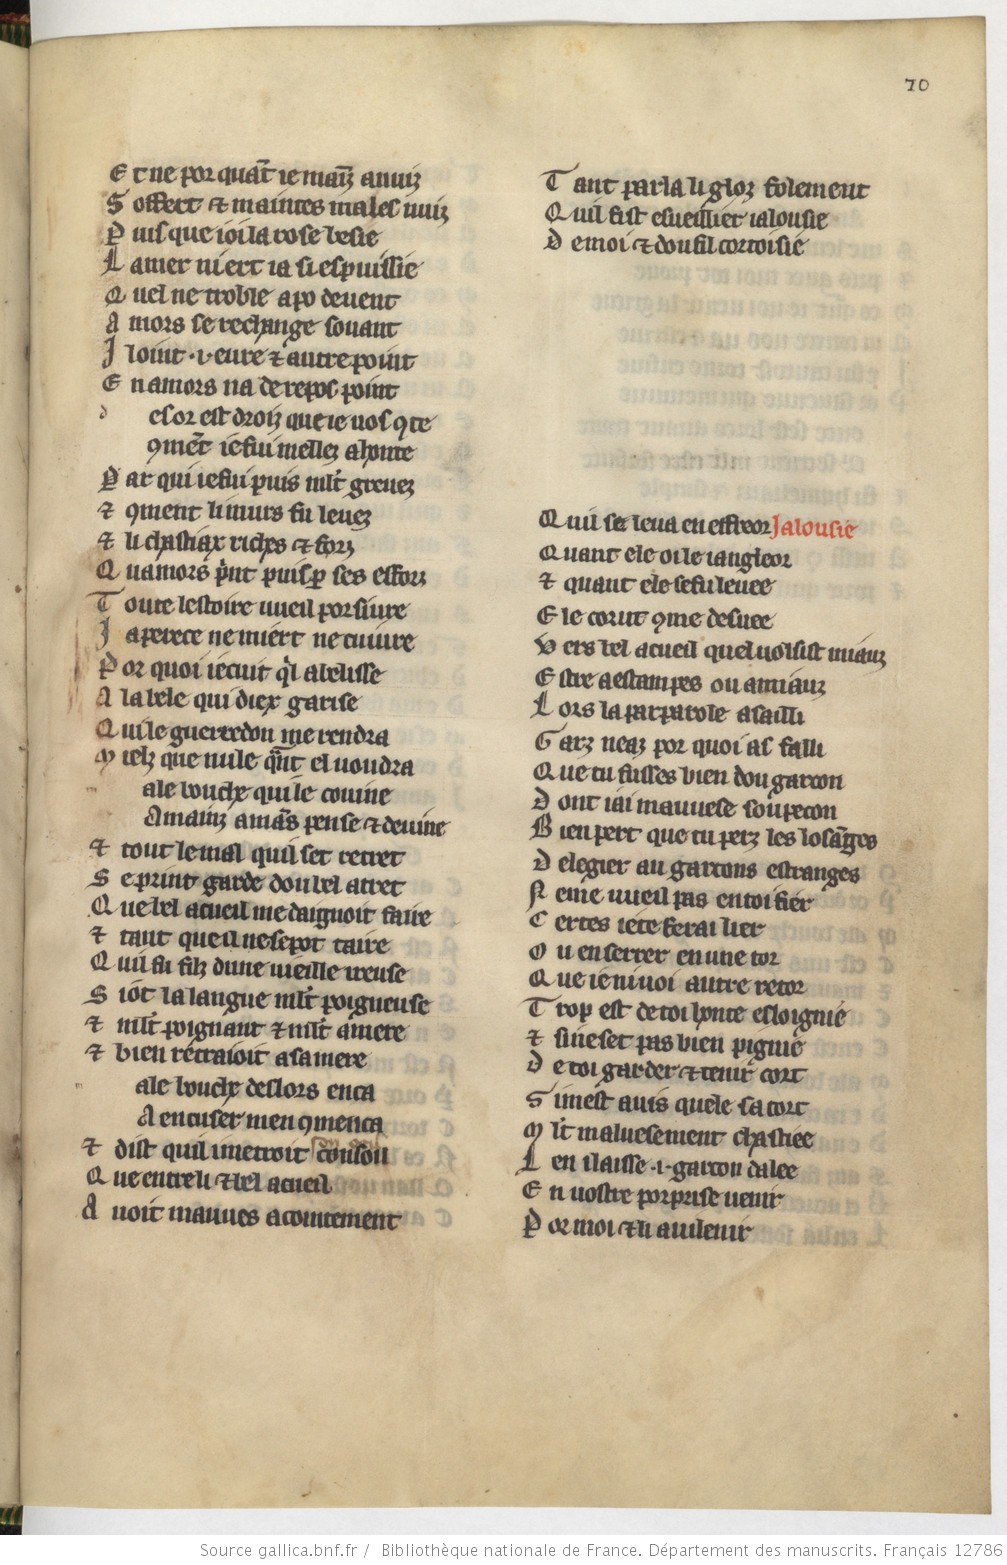 70
E t ne por quāt ie mainz anuiz
S offert & maintes males nuiz
P uis que ioi la rose besie
L a mer niert ia si espuissie
Q uel ne troble a po de vent
A mors se rechange souant
I l oint .i. eure & autre point
E n amors na de repos point
d es or est droiz que ie uos 9te
9mēt ie fui mellez a honte
P ar qui ie fui puis ml't greuez
& 9ment li murs fu leuez
& li chastiax riches & forz
Q uamors p'nt puis p ses efforz
T oute lestoire uueil porsiure
J a perece ne miert ne cuiure
P or quoi ie cuit q'l abelisse
A la bele qui diex garisse
Q ui le guerredon me rendra
M ielz que nule qn̄t el uoudra
m ale bouche qui le couine
A mainz amās pense & deuine
& tout le mal quil set retret
S e print garde dou bel atret
Q ue bel acueil me daignoit faire
& tant que il ne se pot taire
Q uil fu filz dune uieille ireuse
S i ot la langue ml't poigneuse
& ml't poignant & ml't amere
& bien retraioit a sa mere
m ale bouche deslors enca
A encuser men 9menca
& dist quil metroit son oeil
Q ue entre li & bel acueil
A uoit mauues acointement
T ant parla li gloz folement
Q uil fist esueillier ialousie
D e moi & dou fil cortoisie
Q uil se leua en effreor Jalousie
Q uant ele oi le iangleor
& quant ele se fu leuee
E le corut 9me desuee
V ers bel acueil quel uolsist miauz
E stre a estampes ou a miauz
L ors la par parole asailli
G arz neaz por quoi as falli
Q ue tu fusses bien dou garcon
D ont iai mauuese soupecon
B ien pert que tu perz les losāges
D e legier au garcons estranges
N e me uueil pas en toi fier
C ertes ie te ferai lier
O u enserrer en une tor
Q ue ie ni uoi autre retor
T rop est de toi honte esloignie
& si ne set pas bien pignie
D e toi garder & tenir cort
S i mest auis quele sa cort
M l't maluesement chastiee
L en i laisse .i. garcon dalee
E n uostre porprise uenir
P or moi & li auilenir
Source gallica.bnf.fr / Bibliothèque nationale de France. Département des manuscrits. Français 12786